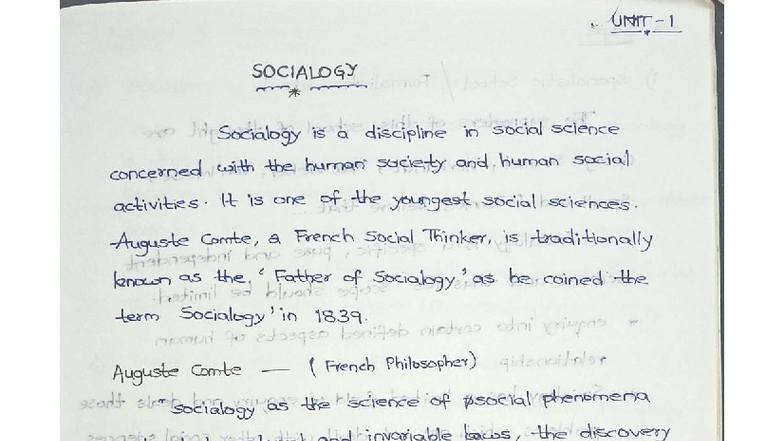 UNIT - 1
SOCIALOGY
Socialogy is a discipline in social science
concerned with the human society and human social
activities. It is one of the youngest social sciences.
Auguste Comte, a French Social Thinker, is traditionally
known as the 'Father of Socialogy' as he coined the
term Socialogy' in 1839.
Auguste Comte — (French Philosopher)
"Socialogy as the science of social phenomena
and invariable laws, the discovery